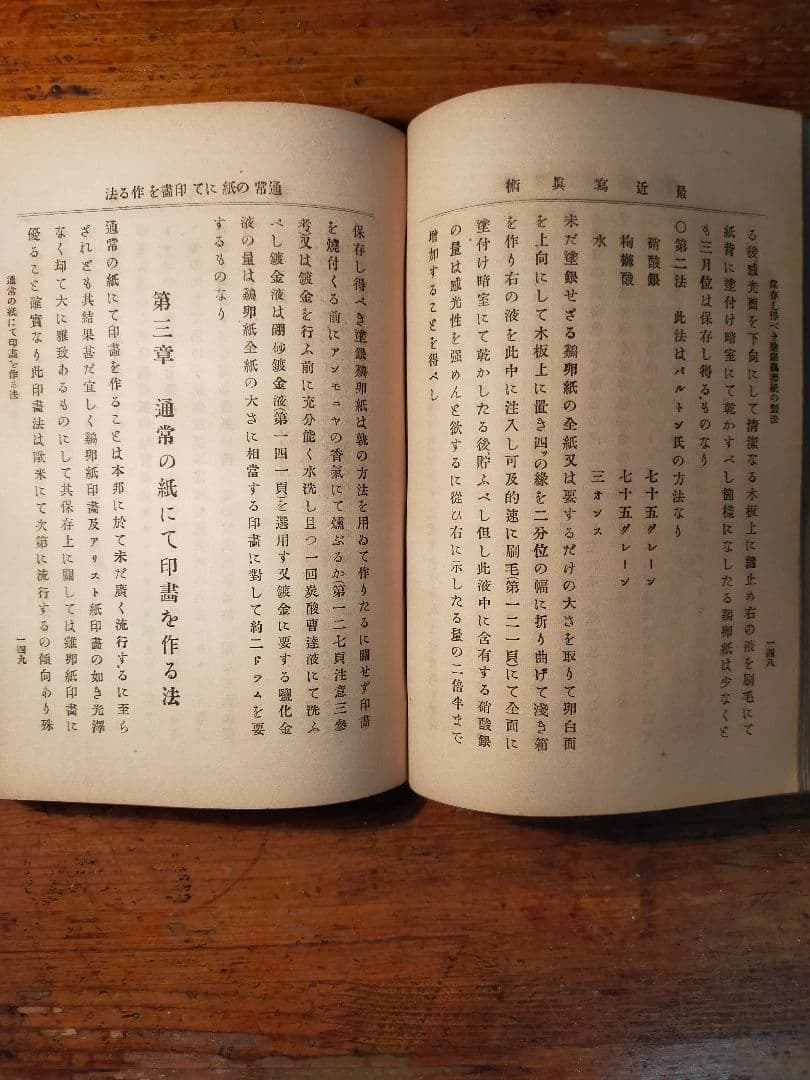 最近寫眞術
保存し得べき塗銀鷄卵紙の製法
一四八
る後感光面を下向にして清潔なる木板上に鋲止め右の液を刷毛にて
紙背に塗付け暗室にて乾かすべし箇樣になしたる鷄卵紙は少なくと
も三月位は保存し得るものなり
〇第二法 此法はバルトン氏の方法なり
硝酸銀 七十五グレーン
枸櫞酸 七十五グレーン
水 三オンス
未だ塗銀せざる鷄卵紙の全紙又は要するだけの大さを取りて卵白面
を上向にして木板上に置き四ッの緣を二分位の幅に折り曲げて淺き箱
を作り右の液を此中に注入し可及的速に刷毛(第一二一頁)にて全面に
塗付け暗室にて乾かしたる後貯ふべし但し此液中に含有する硝酸銀
の量は感光性を强めんと欲するに從ひ右に示したる量の二倍半まで
增加することを得べし
通常の紙にて印畵を作る法
保存し得べき塗銀鷄卵紙は孰の方法を用ゐて作りたるに關せず印畵
を燒付くる前にアンモニヤの香氣にて燻ぶるか(第一二七頁注意三參
考)又は鍍金を行ふ前に充分能く水洗し且つ一回炭酸曹達液にて洗ふ
べし鍍金液は硼砂鍍金液(第一四一頁)を選用す又鍍金に要する鹽化金
液の量は鷄卵紙全紙の大さに相當する印畵に對して約二ドラムを要
するものなり
第三章 通常の紙にて印畵を作る法
通常の紙にて印畵を作ることは本邦に於て未だ廣く流行するに至ら
ざれども其結果甚だ宜しく鷄卵紙印畵及アリスト紙印畵の如き光澤
なく却て大に雅致あるものにして其保存上に關しては雞卵紙印畵に
優ること確實なり此印畵法は歐米にて次第に流行するの傾向あり殊
通常の紙にて印畵を作る法
一四九